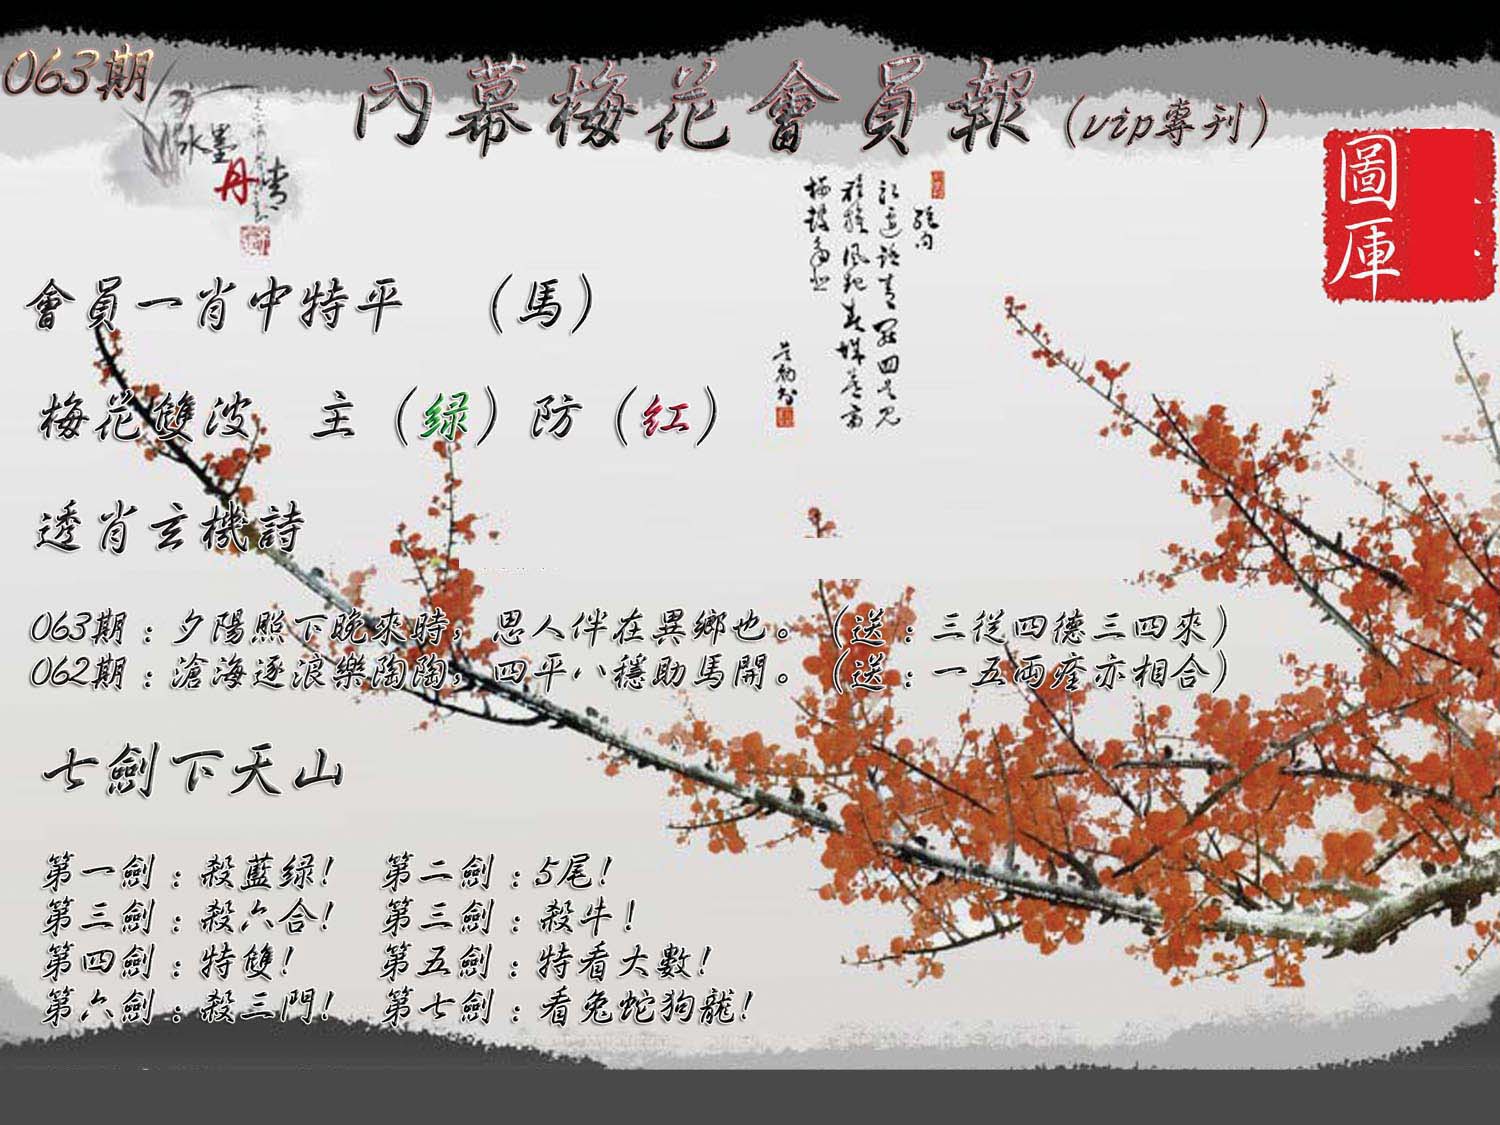 063期
內幕梅花會員報(vip專刊)
水墨
丹青
圖庫
會員一肖中特平 (馬)
梅花雙波 主(绿)防(紅)
透肖玄機詩
063期:夕陽照下晚來時,思人伴在異鄉也。(送:三從四德三四來)
062期:滄海逐浪樂陶陶,四平八穩助馬開。(送:一五両痊亦相合)
七劍下天山
第一劍:殺藍绿! 第二劍:5尾!
第三劍:殺六合! 第三劍:殺牛!
第四劍:特雙! 第五劍:特看大數!
第六劍:殺三門! 第七劍:看兔蛇狗龍!